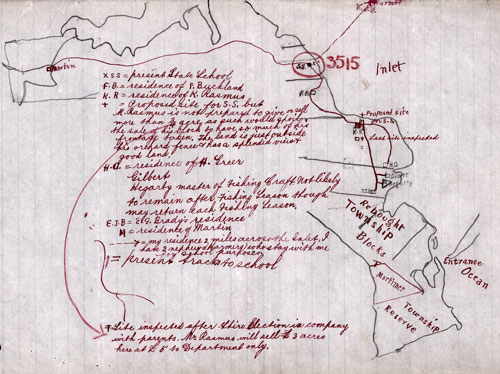 Inlet
3515
S.S.
Martin
x S.S. = present State School
F.B. = residence of F. Buckland
K.R = residence of K. Rasmus
+ = Proposed Site for S.S. but
K. Rasmus is not prepared to give or sell
more than ½ acre as such would
the sale of his block to have so much of his
frontage taken. The land is just outside
his orchard fence & has a splendid view &
good land.
H.G. = residence of H. Greer
Gilbert
Hegarty master of Fishing Craft. Not likely
to remain after Fishing Season though
may return each Fishing Season.
E.J.B = E.J. Brady's residence
M = residence of Martin
= my residence 2 miles across the Inlet, I
have 2 nephews who stay with me
for school purposes
= present track to school
+ Site inspected after in company
with parents. Mr Rasmus will sell 3 acres
here at £5 to Department only.
+ Proposed Site
for S.S.
K.R.
Last site inspected
H.G
Gilbert
Hegarty
Rebought
Township
Blocks
Mortimer
Township
Reserve
Entrance
Ocean